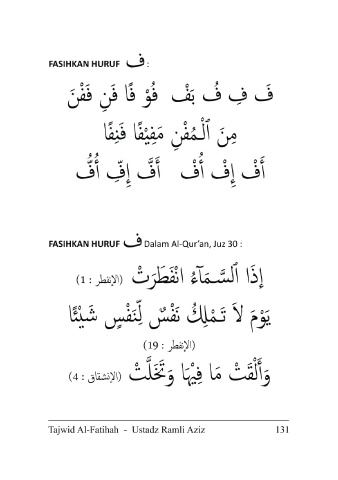 FASIHKAN HURUF ف :
فَ فِ فُ بَفْ فُوْ فًا فَنِ فَفْنَ
مِنَ ٱلْمُفْنِ مَفِيْفًا فَنِفًا
أَفْ إِفْ أُفْ أَفَّ إِفِّ أُفُّ
FASIHKAN HURUF ف Dalam Al-Qur’an, Juz 30 :
إِذَا ٱلسَّمَآءُ انْفَطَرَتْ (الإنفطر : 1)
يَوْمَ لاَ تَمْلِكُ نَفْسٌ لِّنَفْسٍ شَيْئًا
(الإنفطر : 19)
وَأَلْقَتْ مَا فِيْهَا وَتَخَلَّتْ (الإنشقاق : 4)
Tajwid Al-Fatihah - Ustadz Ramli Aziz 131